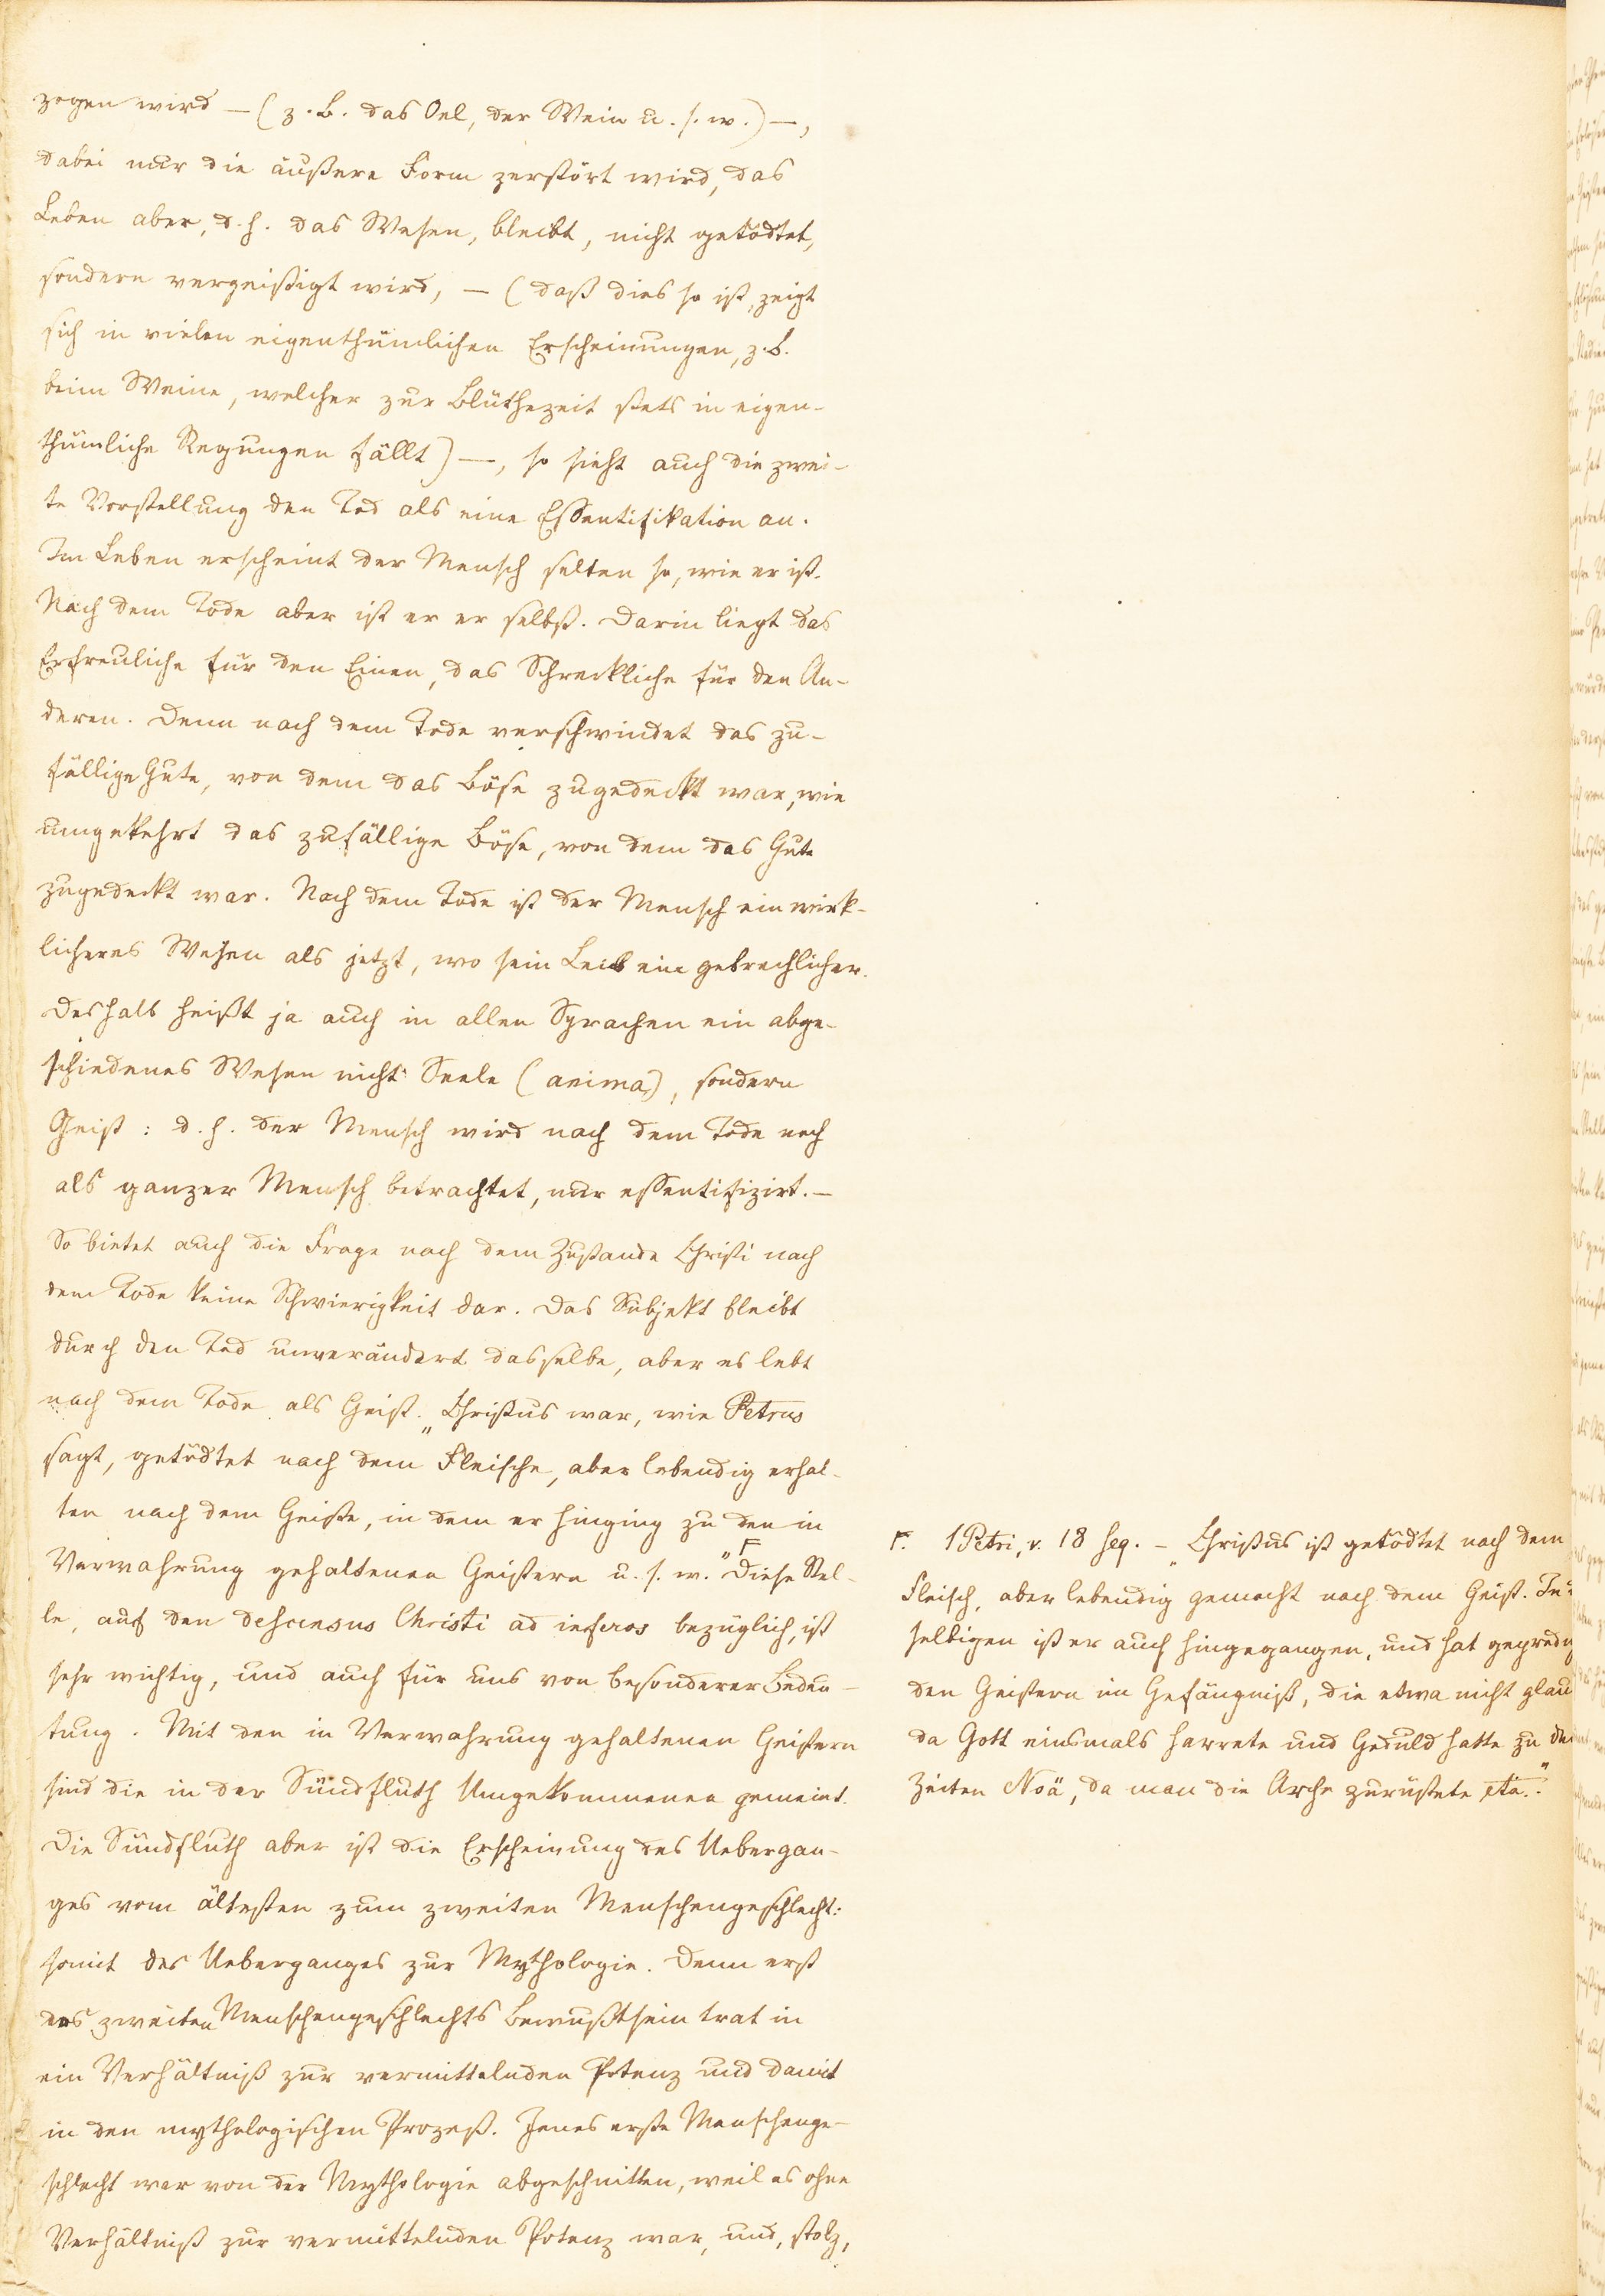 zogen wird – (z. B. das Oel, der Wein u. s. w.) –,
dabei nur die äußere Form zerstört wird, das
Leben aber, d. h. das Wesen, bleibt, nicht getödtet,
sondern vergeistigt wird, – (daß dies so ist, zeigt
sich in vielen eigenthümlichen Erscheinungen, z. B.
beim Weine, welcher zur Blüthezeit stets in eigen-
thümliche Regungen fällt) –, so sieht auch die zwei-
te Vorstellung den Tod als eine Essentifikation an.
Im Leben erscheint der Mensch selten so, wie er ist.
Nach dem Tode aber ist er er selbst. Darin liegt das
Erfreuliche für den Einen, das Schreckliche für den An-
deren. Denn nach dem Tode verschwindet das zu-
fällige Gute, von dem das Böse zugedeckt war, wie
umgekehrt das zufällige Böse, von dem das Gute
zugedeckt war. Nach dem Tode ist der Mensch ein wirk-
licheres Wesen als jetzt, wo sein Leib ein gebrechlicher.
Deshalb heißt ja auch in allen Sprachen ein abge-
schiedenes Wesen nicht Seele (anima), sondern
Geist: d. h. der Mensch wird nach dem Tode noch
als ganzer Mensch betrachtet, nur essentifizirt. –
So bietet auch die Frage nach dem Zustande Christi nach
dem Tode keine Schwierigkeit dar. Das Subjekt bleibt
durch den Tod unverändert dasselbe, aber es lebt
nach dem Tode als Geist. „Christus war, wie Petrus
sagt, getödtet nach dem Fleische, aber lebendig erhal-
ten nach dem Geiste, in dem er hinging zu den in
Verwahrung gehaltenen Geistern u. s. w." F Diese Stel-
le, auf den descensus Christi ad inferos bezüglich, ist
sehr wichtig, und auch für uns von besonderer Bedeu-
tung. Mit den in Verwahrung gehaltenen Geistern
sind die in der Sündfluth Umgekommenen gemeint.
Die Sündfluth aber ist die Erscheinung des Uebergan-
ges vom ältesten zum zweiten Menschengeschlecht:
somit des Ueberganges zur Mythologie. Denn erst
des zweiten Menschengeschlechts Bewußtsein trat in
ein Verhältniß zur vermittelnden Potenz und damit
in den mythologischen Prozeß. Jenes erste Menschenge-
schlecht war von der Mythologie abgeschnitten, weil es ohne
Verhältniß zur vermittelnden Potenz war, und, stolz,
F. 1 Petri, v. 18 seq. – „Christus ist getödtet nach dem
Fleisch, aber lebendig gemacht nach dem Geist. In
selbigen ist er auch hingegangen, und hat gepredig
den Geistern im Gefängniß, die etwa nicht glau
da Gott einsmals harrete und Geduld hatte zu den
Zeiten Noä, da man die Arche zurüstete etc."